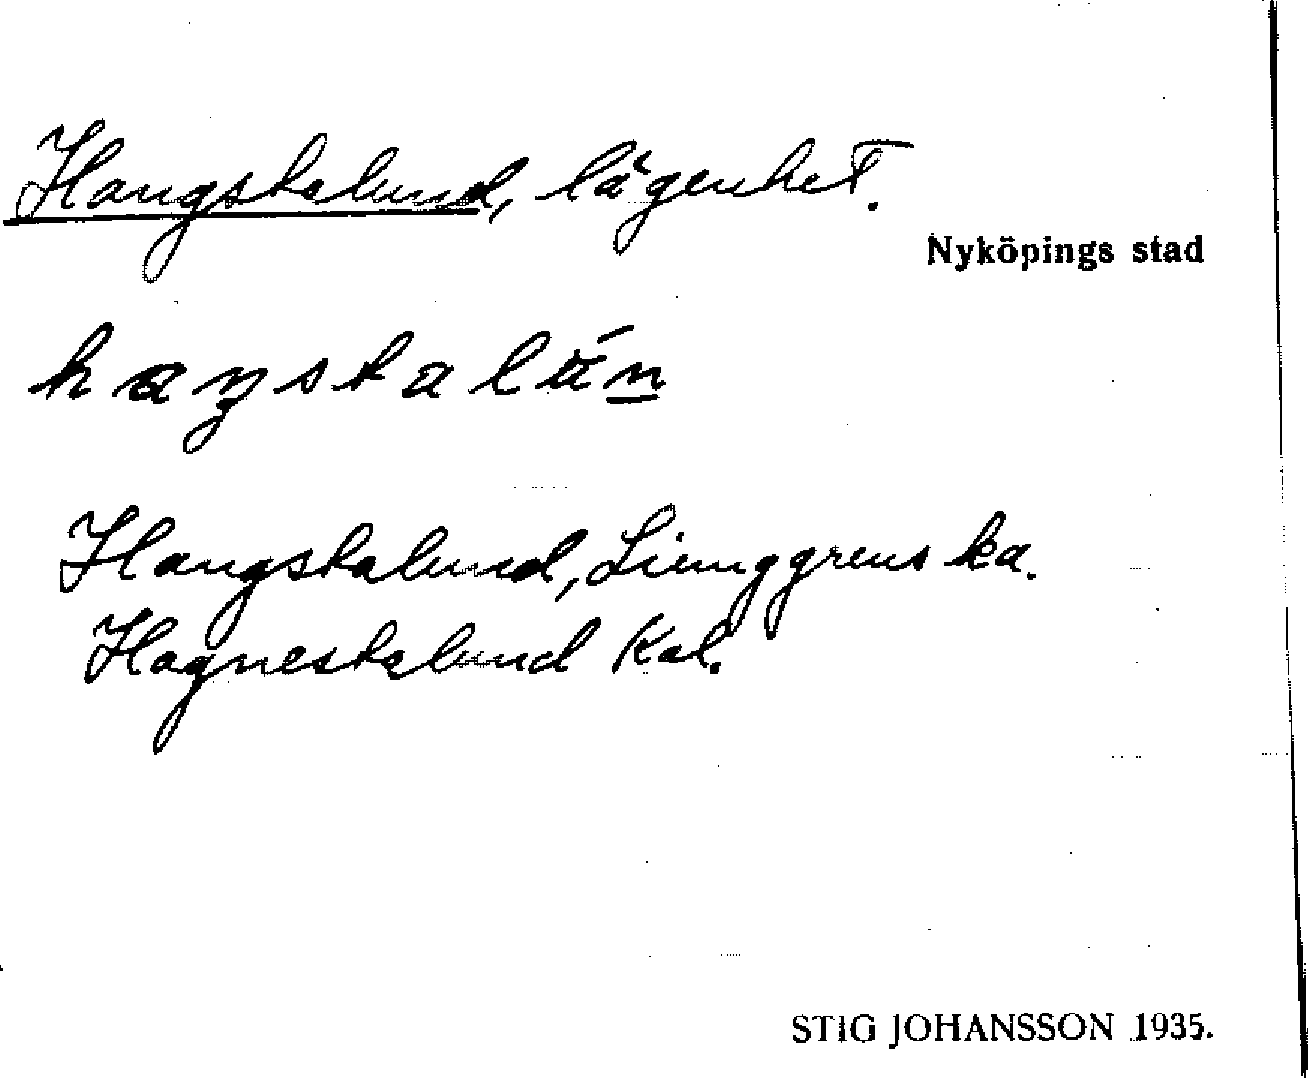 Hangstalund, lägenhet.
Nyköpings stad
haŋstalún̲
Hangstalund, Liunggrens ka.
Hagnestalund Kal.
STIG JOHANSSON 1935.